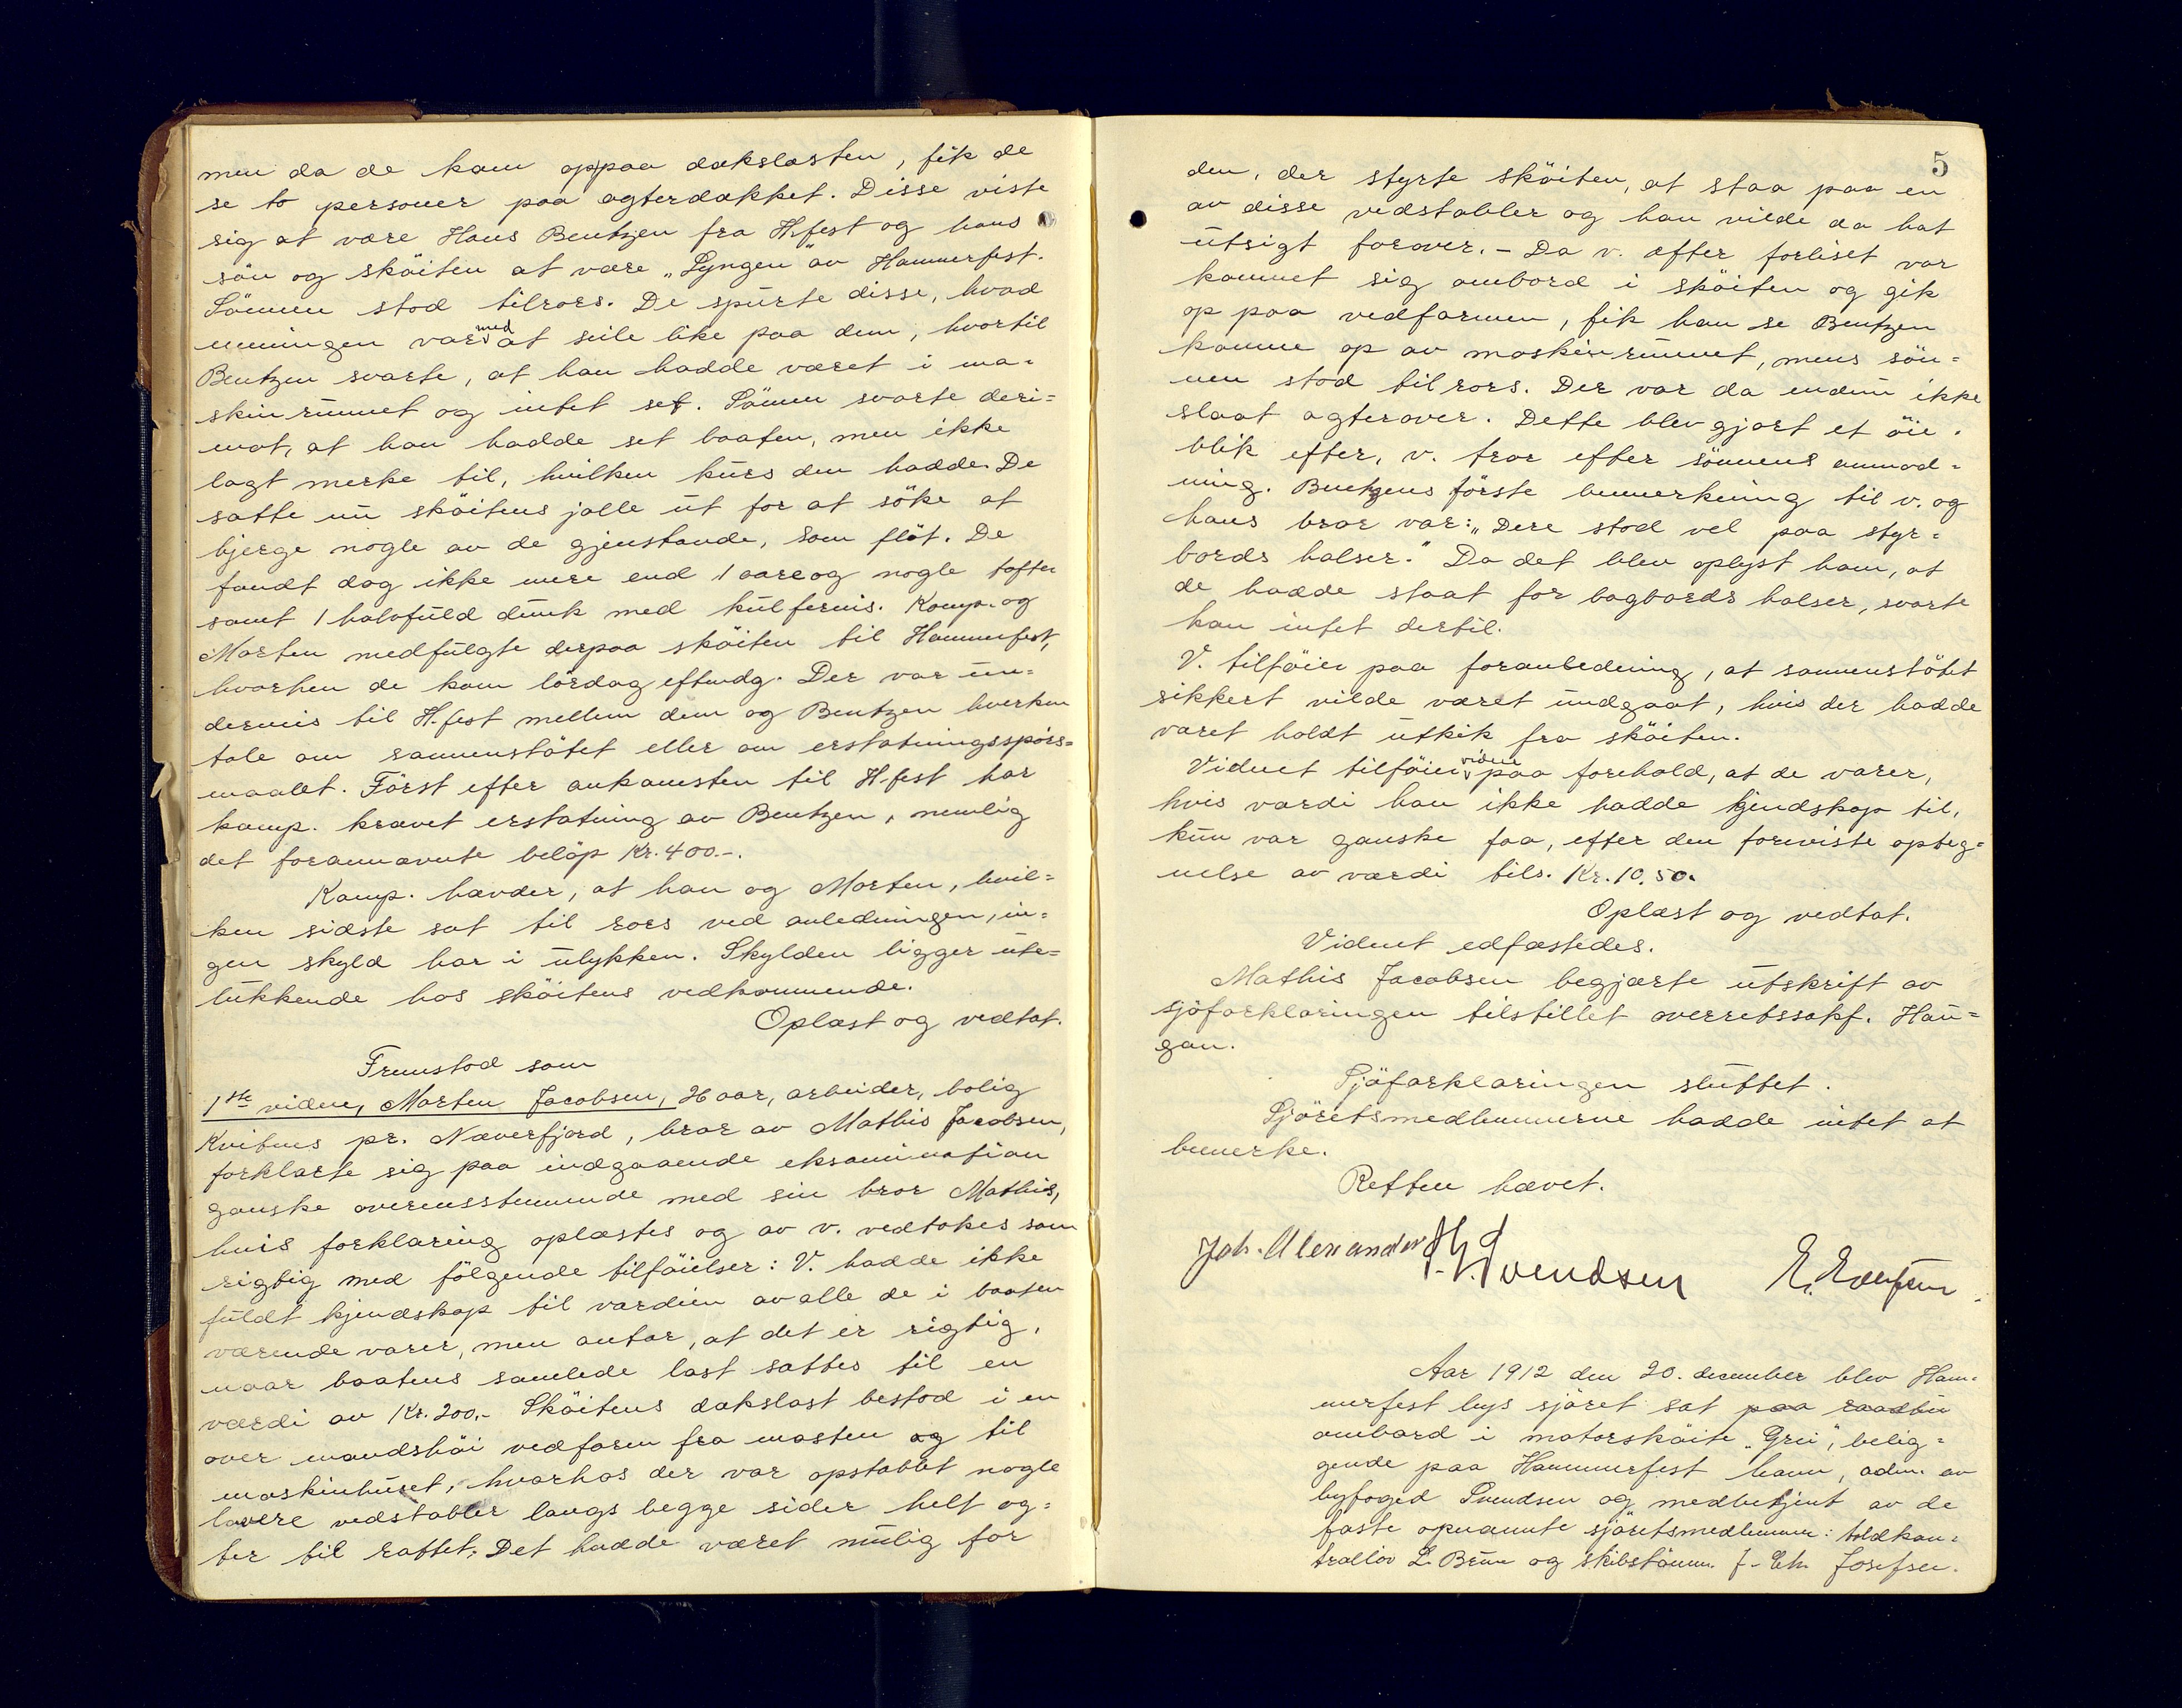 men da de kom oppaa dækslasten, fik de
se to personer paa agterdækket. Disse viste
sig at være Hans Bentzen fra H.fest og hans
sön og sköiten at være „Lyngen" av Hammerfest.
Sönnen stod tilrors. De spurte disse, hvad
meningen var med at seile like paa dem, hvortil
Bentzen svarte, at han hadde været i ma-
skinrummet og intet set. Sönnen svarte deri-
mot, at han hadde set baaten, men ikke
lagt merke til, hvilken kurs den hadde. De
satte nu sköitens jolle ut for at söke at
bjerge nogle av de gjenstande, som flöt. De
fandt dog ikke mere end 1 aare og nogle tofter
samt 1 halvfuld dunk med kulfernis. Komp. og
Morten medfulgte derpaa sköiten til Hammerfest,
hvorhen de kom lördag eftmdg. Der var un-
derveis til H.fest mellem dem og Bentzen hverken
tale om sammenstötet eller om erstatningsspörs-
maalet. Först efter ankomsten til H-fest har
komp. krævet erstatning av Bentzen, nemlig
det forannævnte belöp Kr. 400.-.
Komp. hævder, at han og Morten, hvil-
ken sidste sat til rors ved anledningen, in-
gen skyld har i ulykken. Skylden ligger ute-
lukkende hos sköitens vedkommende.
Oplæst og vedtat.
Fremstod som
1ste vidne, Morten Jacobsen, 26 aar, arbeider, bolig
Kvitnes pr. Næverfjord, bror av Mathis Jacobsen,
forklarte sig paa indgaaende eksamination
ganske overensstemmende med sin bror Mathis,
hvis forklaring oplæstes og av v. vedtokes som
rigtig med fölgende tilföielser: V. hadde ikke
fuldt kjendskap til værdien av alle de i baaten
værende varer, men antar, at det er rigtig,
naar baatens samlede last sættes til en
værdi av Kr. 200.- Sköitens dækslast bestod i en
over mandshöi vedfarm fra masten og til
maskinhuset, hvorhos der var opstablet nogle
lavere vedstabler langs begge sider helt ag-
ter til rattet. Det hadde været mulig for
5
den, der styrte sköiten, at staa paa en
av disse vedstabler og han vilde da hat
utsigt forover. - Da v. efter forliset var
kommet sig ombord i sköiten og gik
op paa vedfarmen, fik han se Bentzen
komme op av maskinrummet, mens sön-
nen stod tilrors. Der var da endnu ikke
slaat agterover. Dette blev gjort et öie-
blik efter, v. tror efter sönnens anmod-
ning. Bentzens förste bemerkning til v. og
hans bror var: „Dere stod vel paa styr-
bords halser." Da det blev oplyst ham, at
de hadde staat for bagbords halser, svarte
han intet dertil.
V. tilföier paa foranledning, at sammenstötet
sikkert vilde været undgaat, hvis der hadde
været holdt utkik fra sköiten.
Vidnet tilföier videre paa forehold, at de varer,
hvis værdi han ikke hadde kjendskap til,
kun var ganske faa, efter den foreviste opteg-
nelse av værdi tils. Kr. 10.50.
Oplæst og vedtat.
Vidnet edfæstedes.
Mathis Jacobsen begjærte utskrift av
sjöforklaringen tilstillet overretssakf. Hau-
gan.
Sjöforklaringen sluttet.
Sjöretsmedlemmerne hadde intet at
bemerke.
Retten hævet.
Joh. Alexander Svendsen E. Evensen
Aar 1912 den 20. december blev Ham-
merfest bys sjöret sat paa raadhu
ombord i motorsköite „Grei", belig-
gende paa Hammerfest havn, adm. av
byfoged Svendsen og medbetjent av de
faste opnævnte sjöretsmedlemmer: toldkon-
trollör L. Brun og skibstömm. J. Chr. Josefsen.